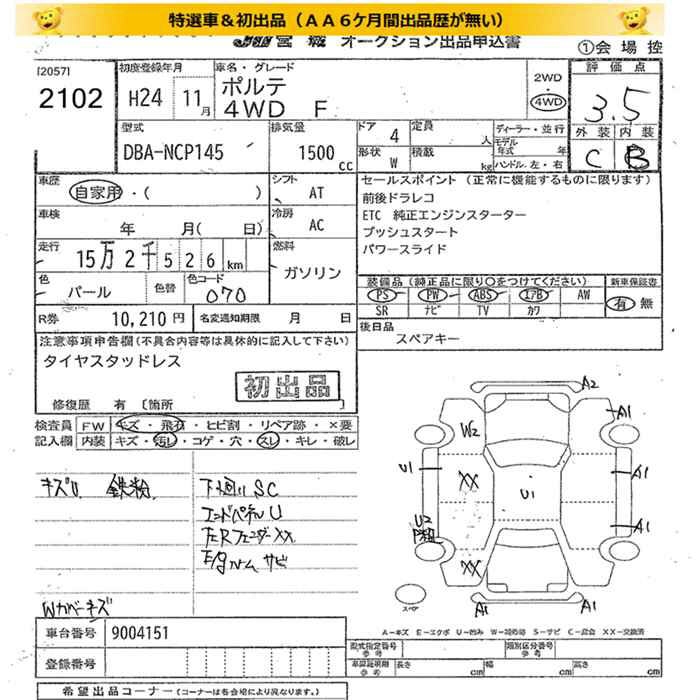 特選車＆初出品（ＡＡ６ケ月間出品歴が無い）
JU宮城 オークション出品申込書
①会場控
[2057]
2102
初度登録年月
H24 11月
車名・グレード
ポルテ
4WD F
2WD
・
4WD
評価点
3.5
外装 内装
C B
型式
DBA-NCP145
排気量
1500 cc
ドア 4
形状 W
定員 人
積載 kg
ディーラー・並行
モデル年式 年
ハンドル.左・右
車歴 自家用・( )
シフト AT
車検 年 月( 日)
冷房 AC
走行 15万2千526km
燃料 ガソリン
色 パール
色替
色コード 070
R券 10,210円
名変通知期限 月 日
セールスポイント（正常に機能するものに限ります）
前後ドラレコ
ETC 純正エンジンスターター
プッシュスタート
パワースライド
装備品（純正品に限り○をつけてください）
新車保証書
PS PW ABS エアB AW
SR ナビ TV カワ
有 無
後日品
スペアキー
注意事項申告欄(不具合内容等は具体的に記入して下さい)
タイヤスタッドレス
初出品
修復歴 有 〔箇所 〕
検査員記入欄
FW キズ・飛石・ヒビ割・リペア跡・×要
内装 キズ・汚レ・コゲ・穴・スレ・キレ・破レ
キズU 鉄粉
下廻り SC
エンドパネル U
左Rフェンダー XX
E/gルーム サビ
Wカバーキズ
A2
A1
W2
U1
XX
A1
U1
U2
A1
XX
スペア
A1
A1
A－キズ E－エクボ U－凹み W－補修跡 S－サビ C－腐食 XX－交換済
車台番号 9004151
登録番号
型式指定番号 参考
類別区分番号 参考
車検証規格 参考
長さ cm 幅 cm 高さ cm
希望出品コーナー(コーナーは各会場により異なります。)